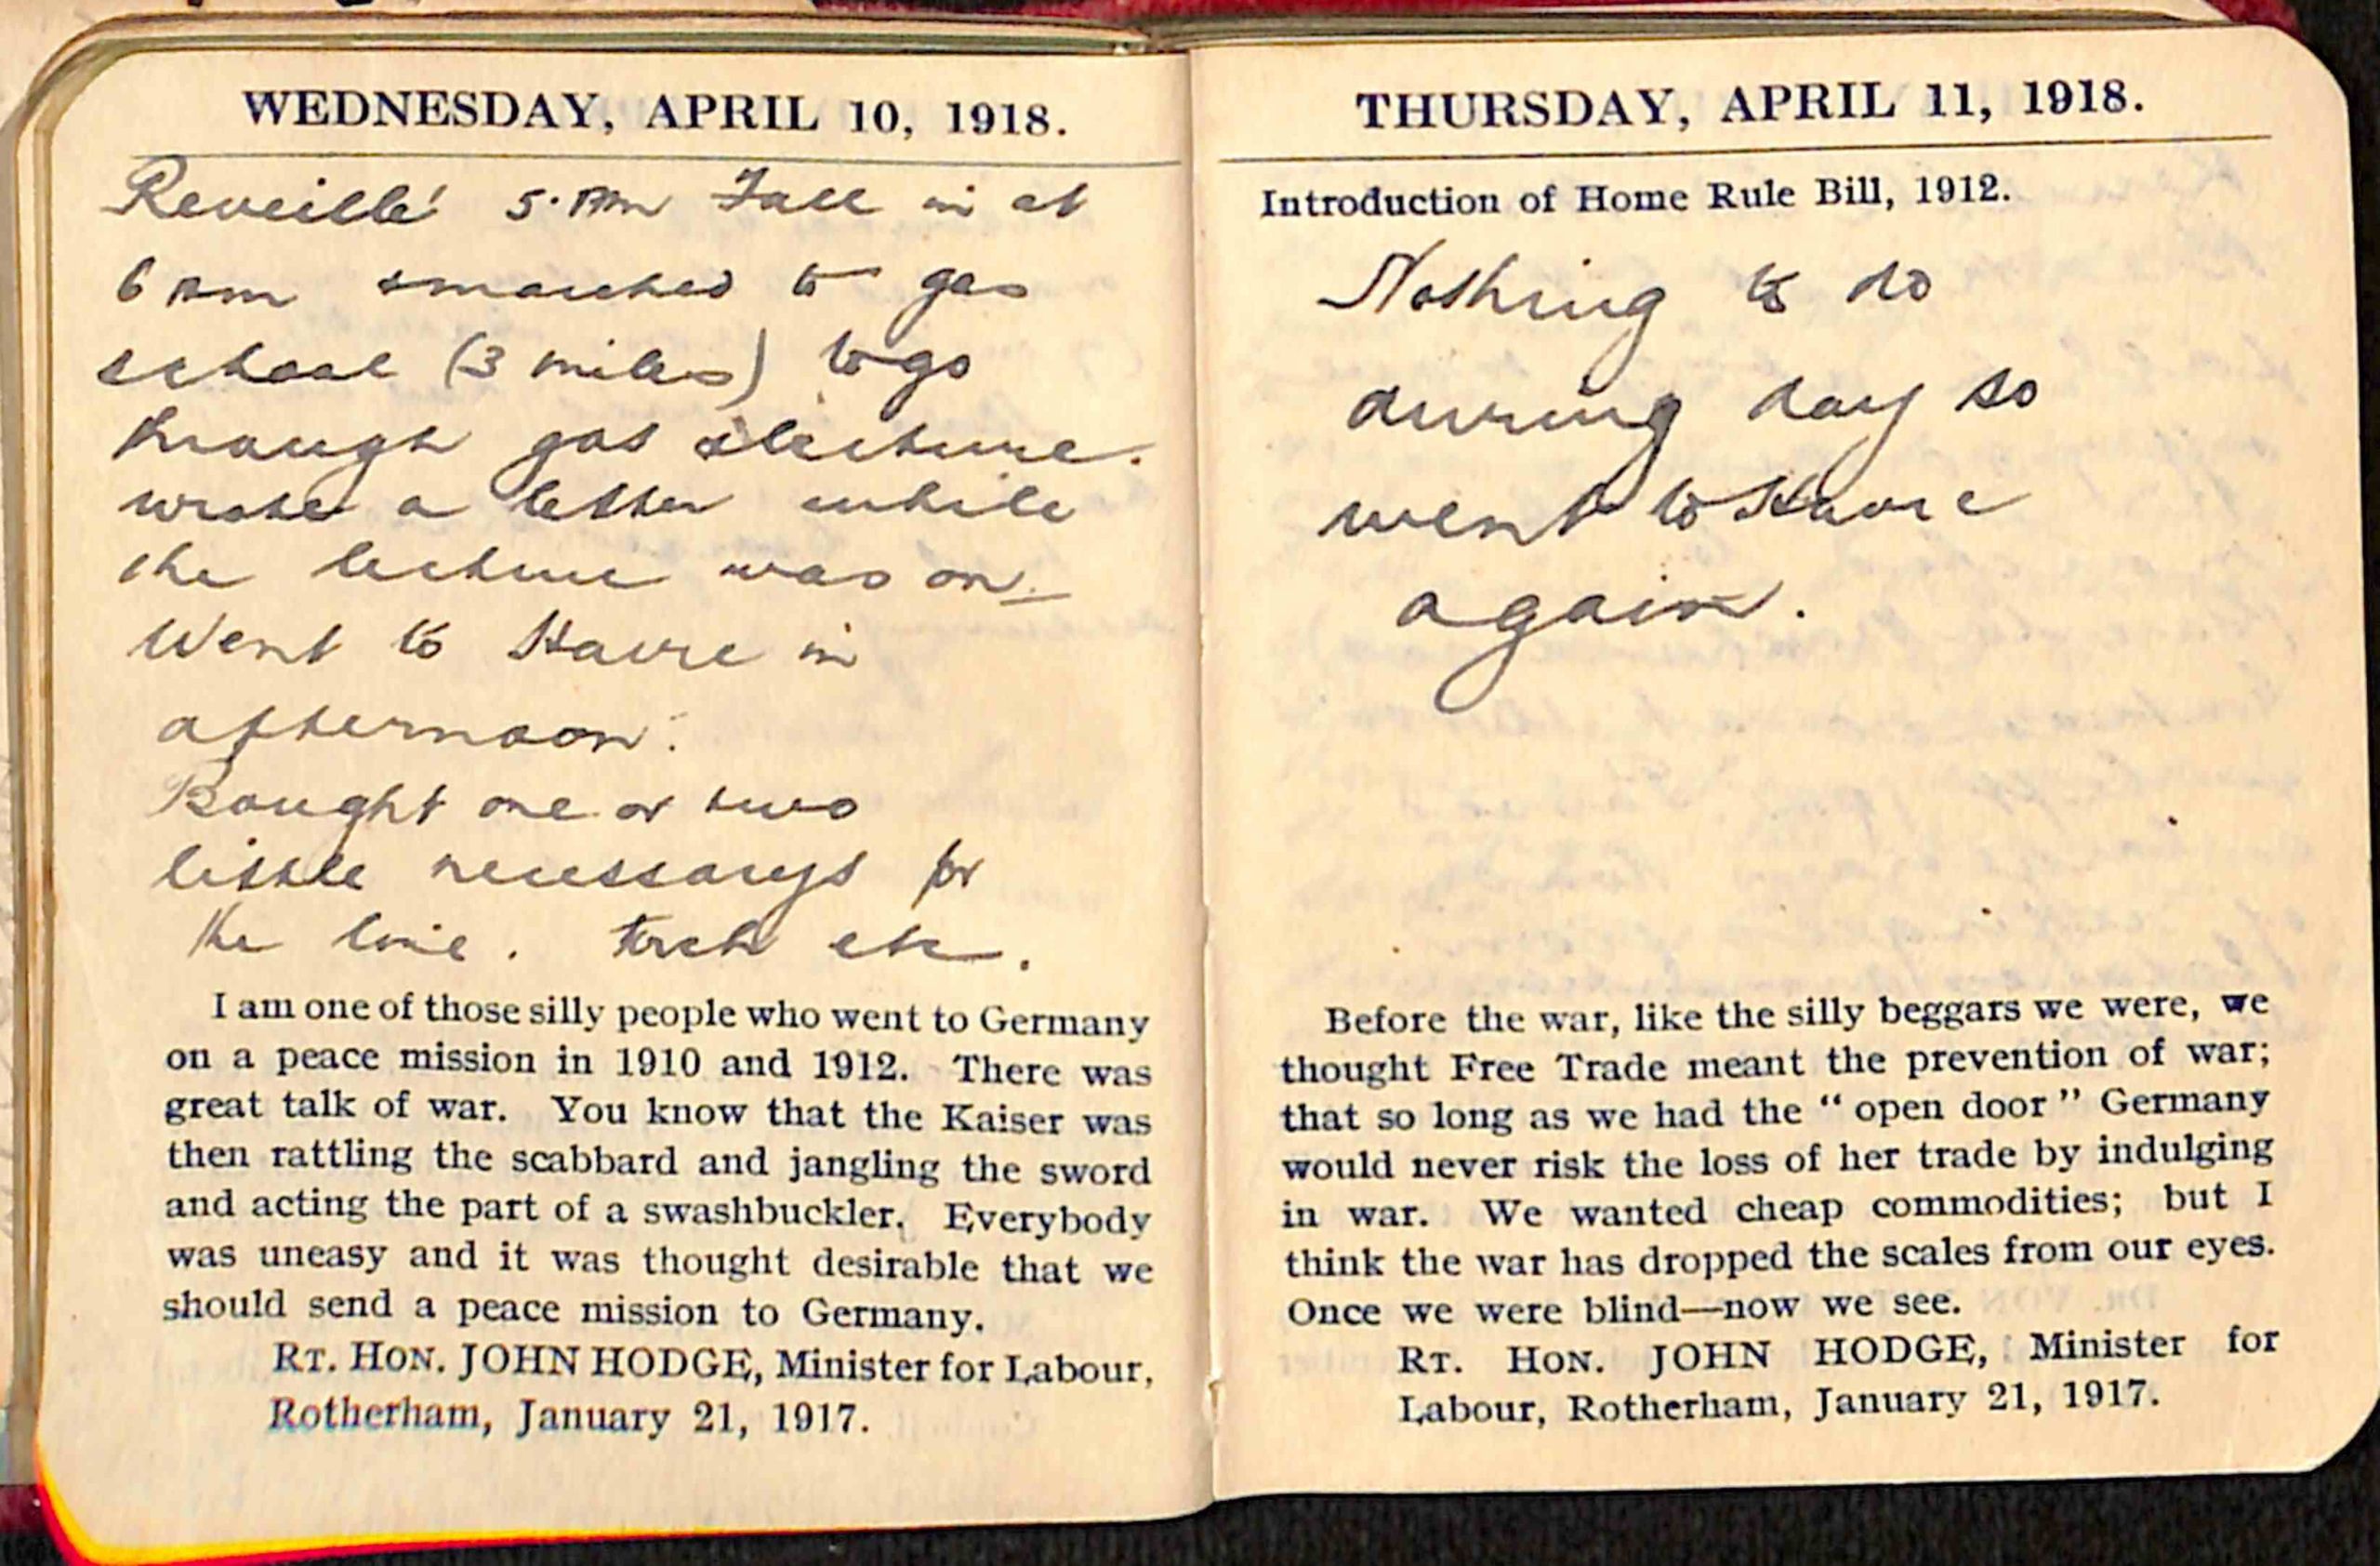 WEDNESDAY, APRIL 10, 1918.
Reveille' 5. Am Fall in at
6 am & marched to gas
school (3 miles) to go
through gas & lecture.
wrote a letter while
the lecture was on.
Went to Havre in
afternoon.
Bought one or two
little necessarys for
the line. torch etc.
I am one of those silly people who went to Germany
on a peace mission in 1910 and 1912. There was
great talk of war. You know that the Kaiser was
then rattling the scabbard and jangling the sword
and acting the part of a swashbuckler. Everybody
was uneasy and it was thought desirable that we
should send a peace mission to Germany.
RT. HON. JOHN HODGE, Minister for Labour,
Rotherham, January 21, 1917.
THURSDAY, APRIL 11, 1918.
Introduction of Home Rule Bill, 1912.
Nothing to do
during day so
went to Havre
again.
Before the war, like the silly beggars we were, we
thought Free Trade meant the prevention of war;
that so long as we had the "open door" Germany
would never risk the loss of her trade by indulging
in war. We wanted cheap commodities; but I
think the war has dropped the scales from our eyes.
Once we were blind—now we see.
RT. HON. JOHN HODGE, Minister for
Labour, Rotherham, January 21, 1917.